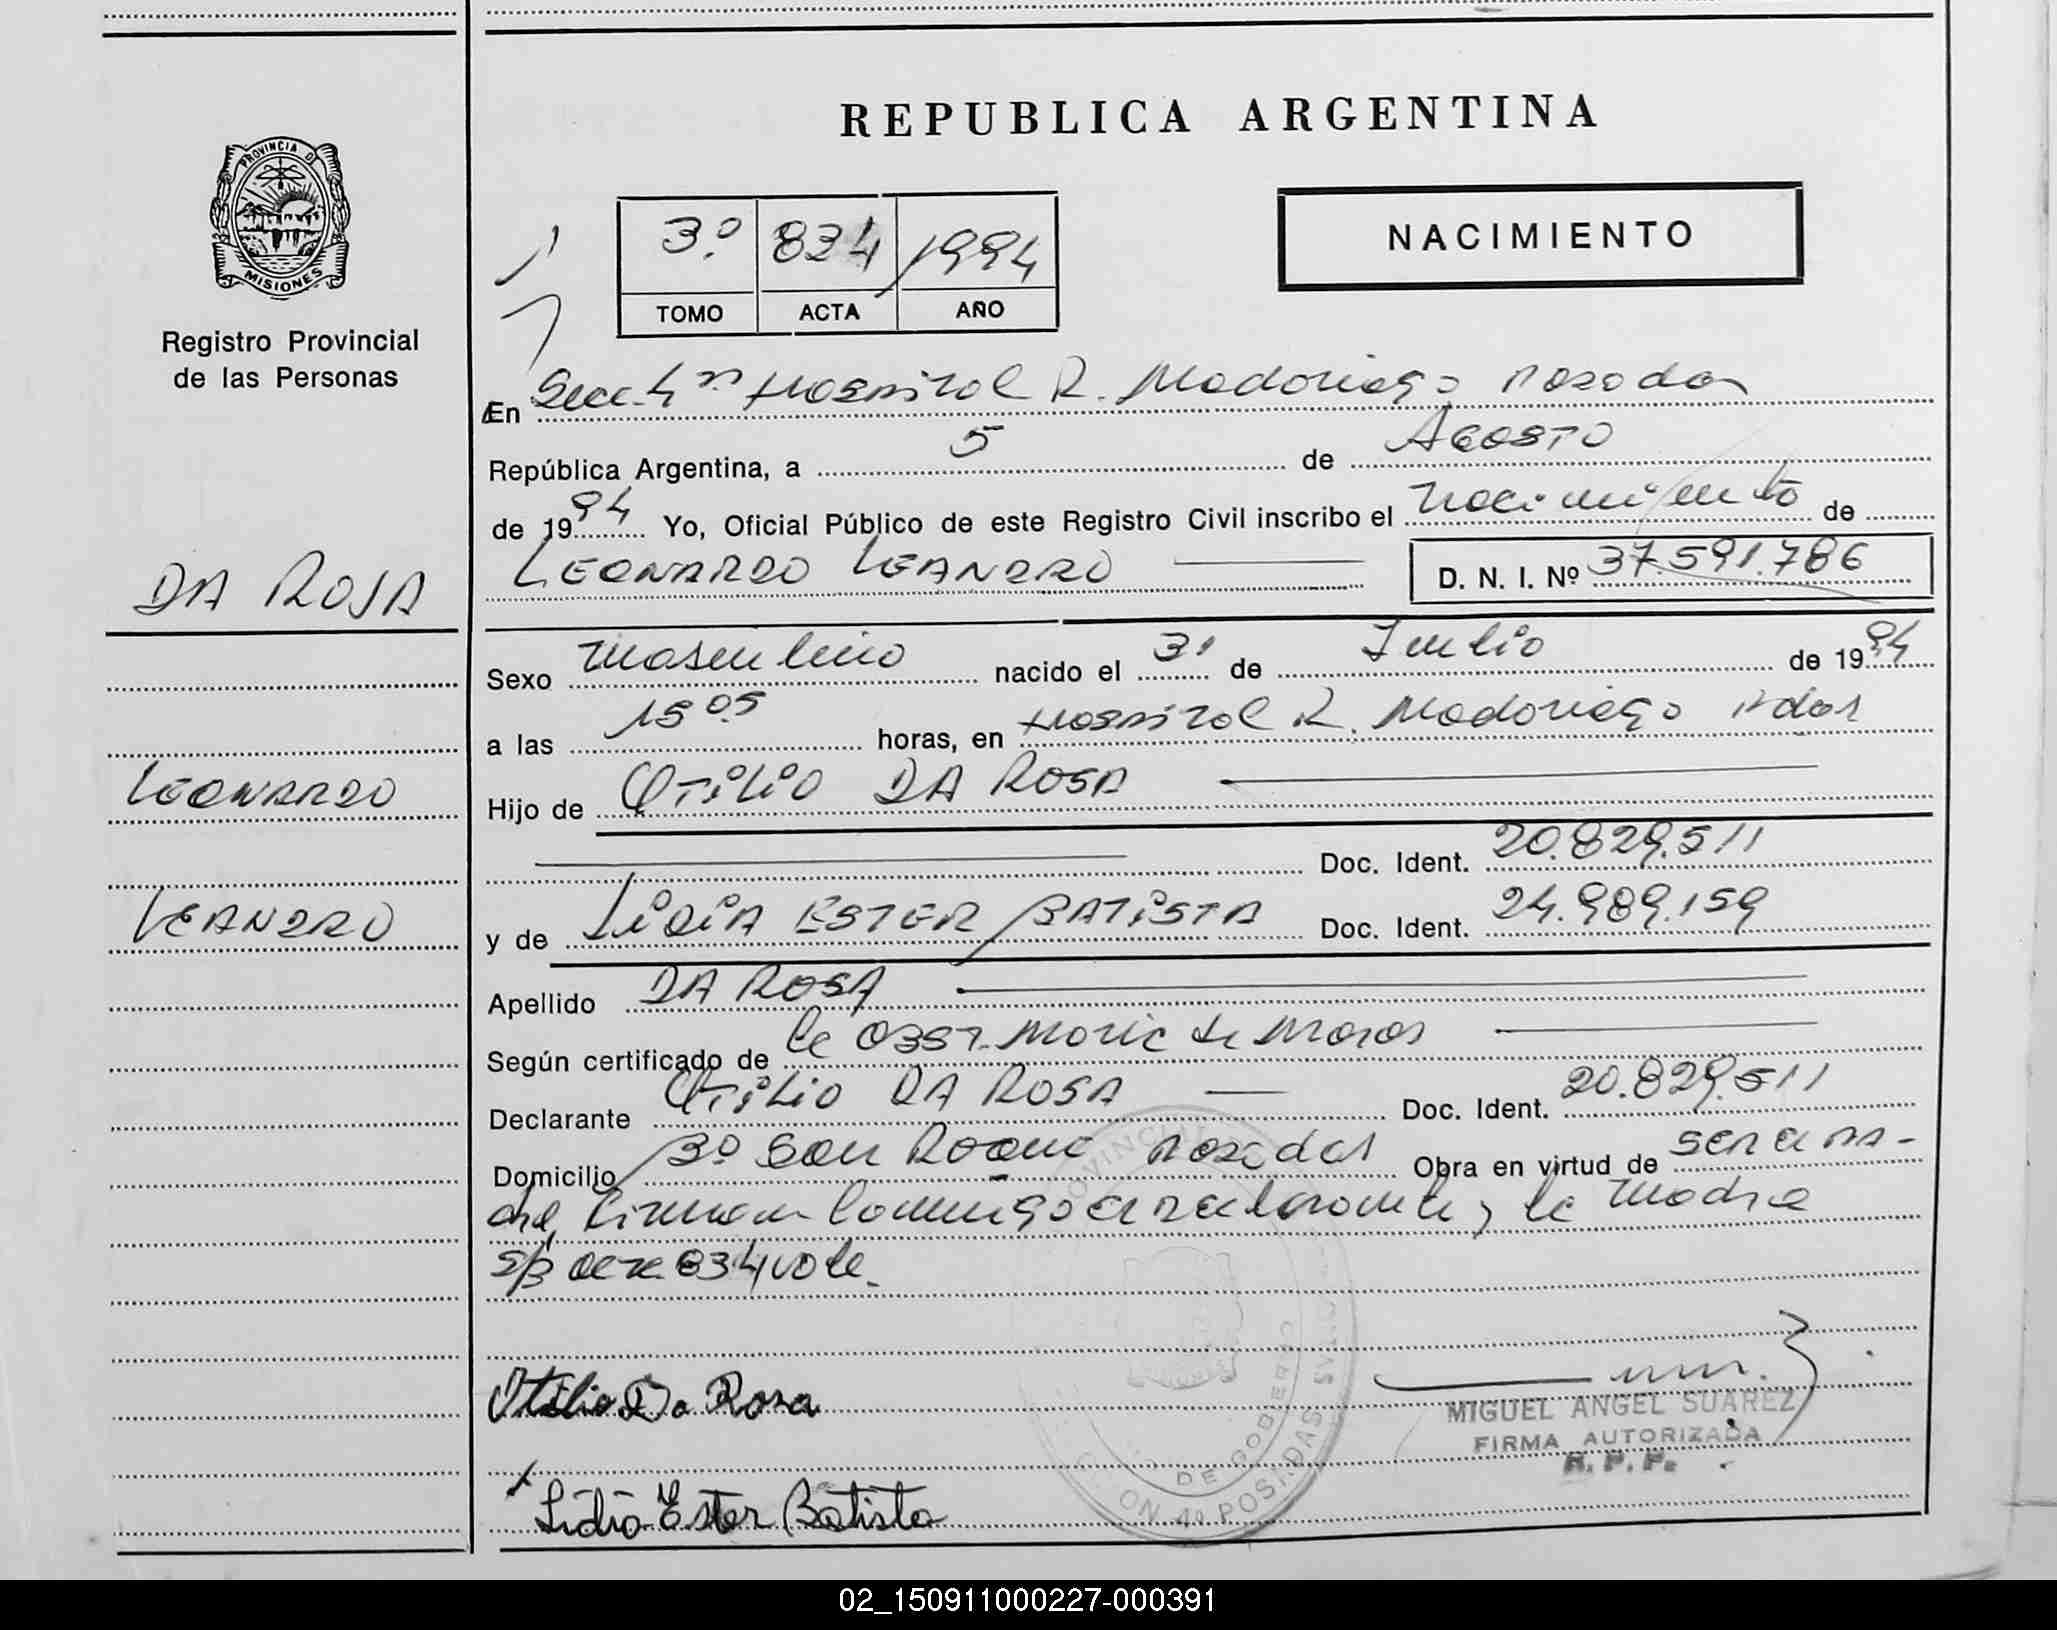 REPUBLICA ARGENTINA
PROVINCIA DE
MISIONES
Registro Provincial
de las Personas
3º 834 1994
TOMO ACTA AÑO
NACIMIENTO
En Secc. 4ª Hospital R. Madariaga Posadas
República Argentina, a 5 de AGOSTO
de 1994 Yo, Oficial Público de este Registro Civil inscribo el nacimiento de
LEONARDO LEANDRO D. N. I. Nº 37.591.786
DA ROSA
Sexo masculino nacido el 31 de Julio de 1994
a las 15 05 horas, en Hospital R. Madariaga Pdas
LEONARDO
Hijo de OTILIO DA ROSA
Doc. Ident. 20.829.511
LEANDRO
y de LIDIA ESTER BATISTA Doc. Ident. 24.989.159
Apellido DA ROSA
Según certificado de la Obst.
Declarante OTILIO DA ROSA Doc. Ident. 20.829.511
Domicilio Bº San Roque Posadas Obra en virtud de ser el pa-
dre, Firman conmigo el declarante y la madre
s/b acta 834 vale.
Otilio Da Rosa
MIGUEL ANGEL SUAREZ
FIRMA AUTORIZADA
R. P. P.
Lidia Ester Batista
PROVINCIA
DE GOBIERNO
ON 4ª POSADAS
02_150911000227-000391